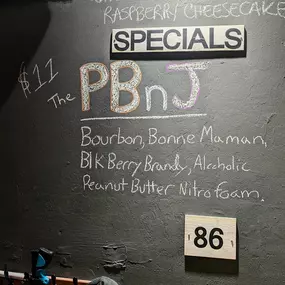 RASPBERRY CHEESECAKE
SPECIALS
$11
The PBnJ
Bourbon, Bonne Maman,
BlkBerry Brandy, Alcoholic
Peanut Butter Nitro foam.
86